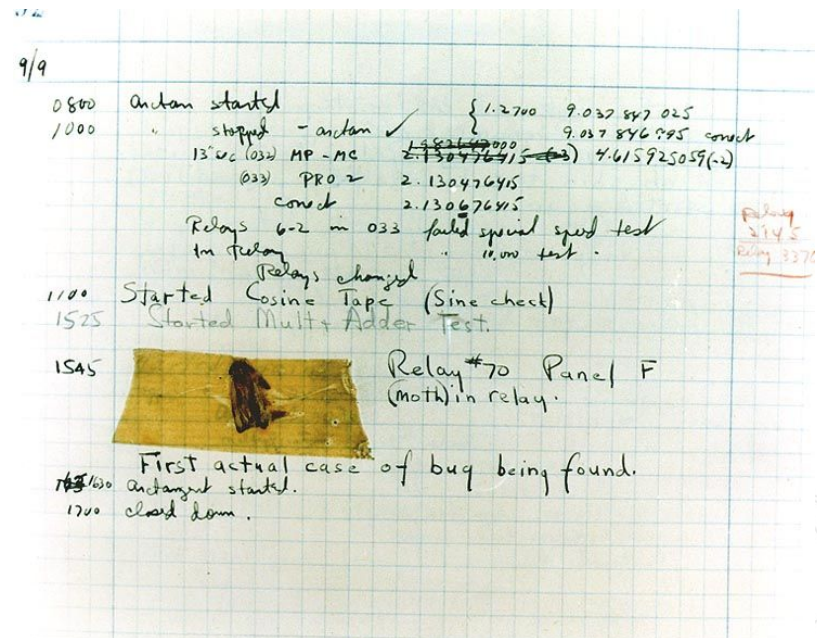 9/9
0800 Antan started
1000 " stopped - antan ✓ { 1.2700 9.037 847 025
9.037 846 995 correct
13"uc (032) MP - MC 2.130476415 (-3) 4.615925059(-2)
(033) PRO 2 2.130476415
correct 2.130676415
Relays 6-2 in 033 failed special speed test
In Relay " 10.000 test .
Relays changed
Relay
2145
Relay 3370
1100 Started Cosine Tape (Sine check)
1525 Started Mult + Adder Test.
1545 Relay #70 Panel F
(moth) in relay.
First actual case of bug being found.
1630 antangent started.
1700 closed down .